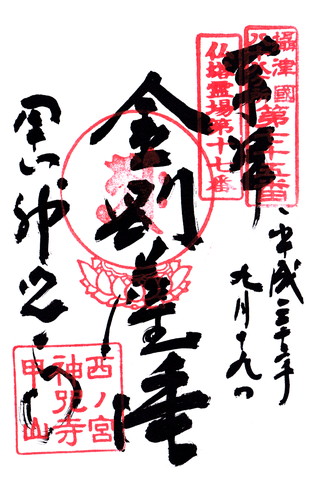 攝津國第七十五番
仏塔霊場第十七番
奉拝
平成
九月十九日
金剛薩埵
甲山神呪寺
西ノ宮
神呪寺
甲山